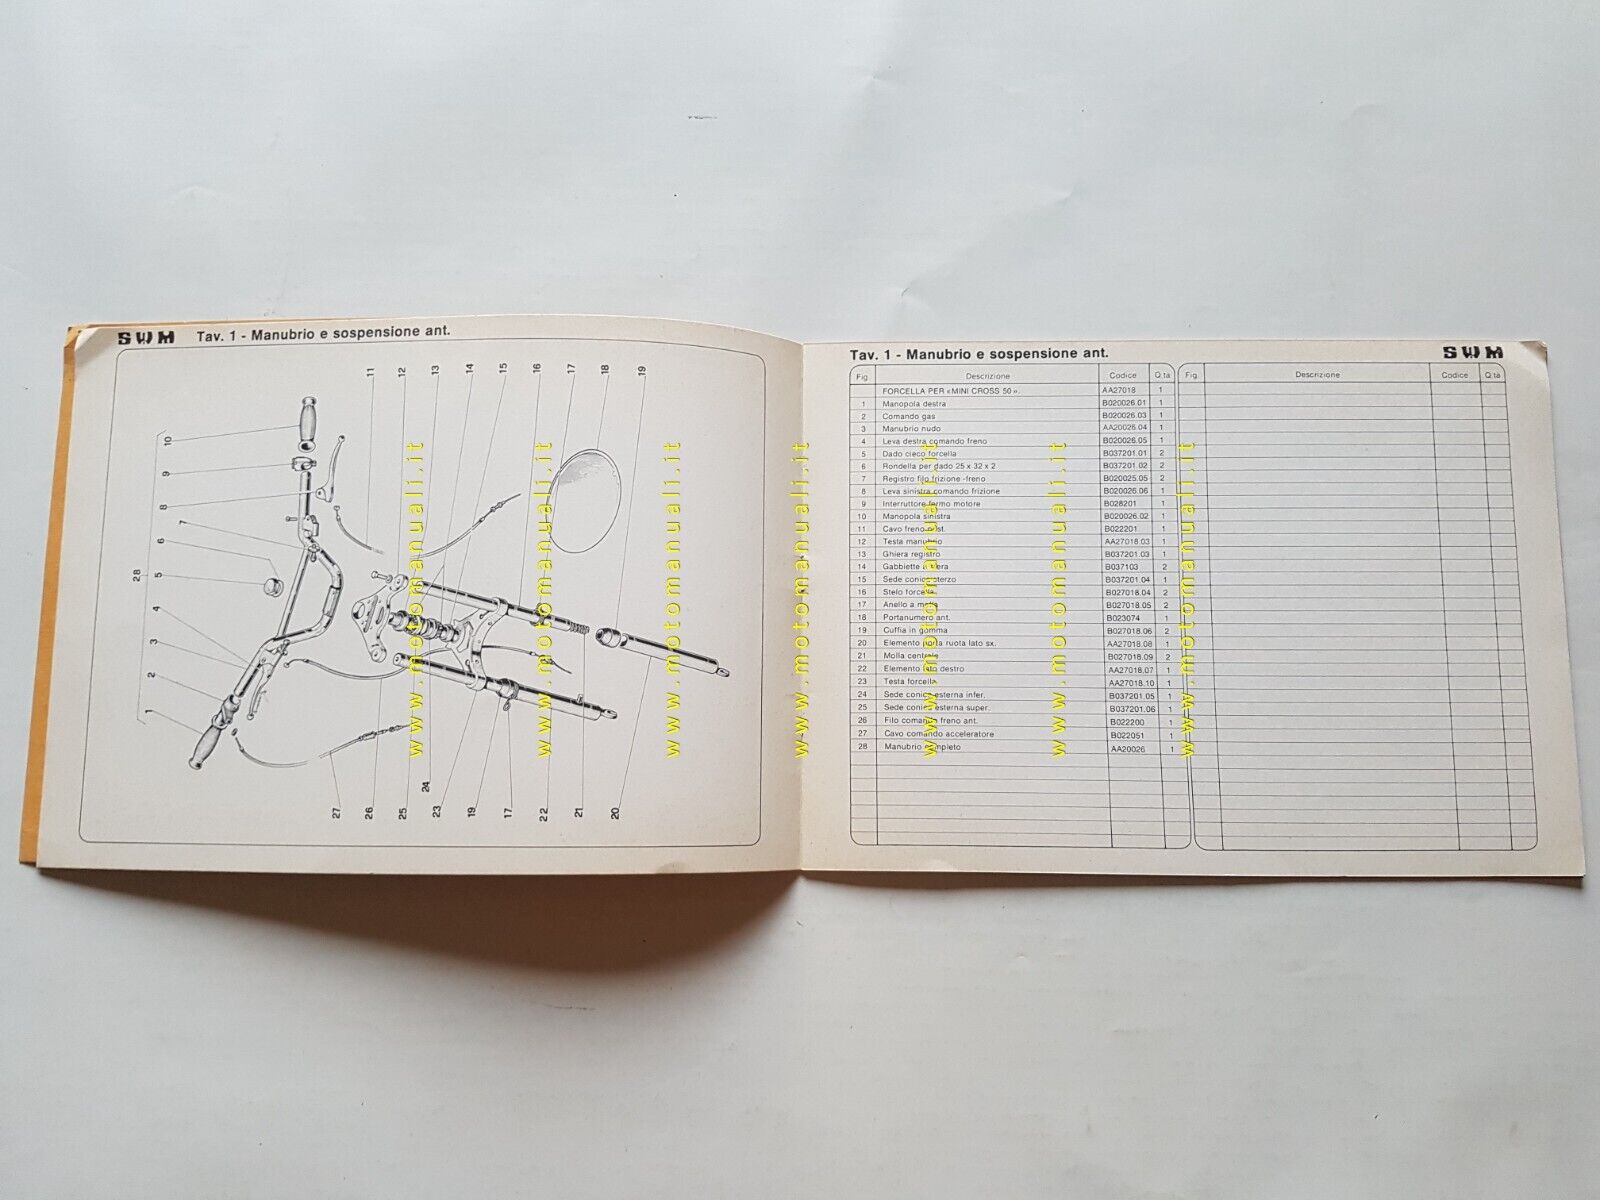 SWM Tav. 1 - Manubrio e sospensione ant.
11 12 13 14 15 16 17 18 19
10
9
8
7
6
5
28
4
3
2
1
27 26 25 24 23 19 17 22 21 20
Tav. 1 - Manubrio e sospensione ant. SWM
Fig. Descrizione Codice Q.tà Fig. Descrizione Codice Q.tà
FORCELLA PER «MINI CROSS 50». AA27018 1
1 Manopola destra B020026.01 1
2 Comando gas B020026.03 1
3 Manubrio nudo AA20026.04 1
4 Leva destra comando freno B020026.05 1
5 Dado cieco forcella B037201.01 2
6 Rondella per dado 25 x 32 x 2 B037201.02 2
7 Registro filo frizione -freno B020025.05 2
8 Leva sinistra comando frizione B020026.06 1
9 Interruttore fermo motore B028201 1
10 Manopola sinistra B020026.02 1
11 Cavo freno post. B022201 1
12 Testa manubrio AA27018.03 1
13 Ghiera registro B037201.03 1
14 Gabbiette a sfera B037103 2
15 Sede conica sterzo B037201.04 1
16 Stelo forcella B027018.04 2
17 Anello a molla B027018.05 2
18 Portanumero ant. B023074 1
19 Cuffia in gomma B027018.06 2
20 Elemento porta ruota lato sx. AA27018.08 1
21 Molla centrale B027018.09 2
22 Elemento lato destro AA27018.07 1
23 Testa forcella AA27018.10 1
24 Sede conica esterna infer. B037201.05 1
25 Sede conica esterna super. B037201.06 1
26 Filo comando freno ant. B022200 1
27 Cavo comando acceleratore B022051 1
28 Manubrio completo AA20026 1
www.motomanuali.it
www.motomanuali.it
www.motomanuali.it
www.motomanuali.it
www.motomanuali.it
www.motomanuali.it
www.motomanuali.it